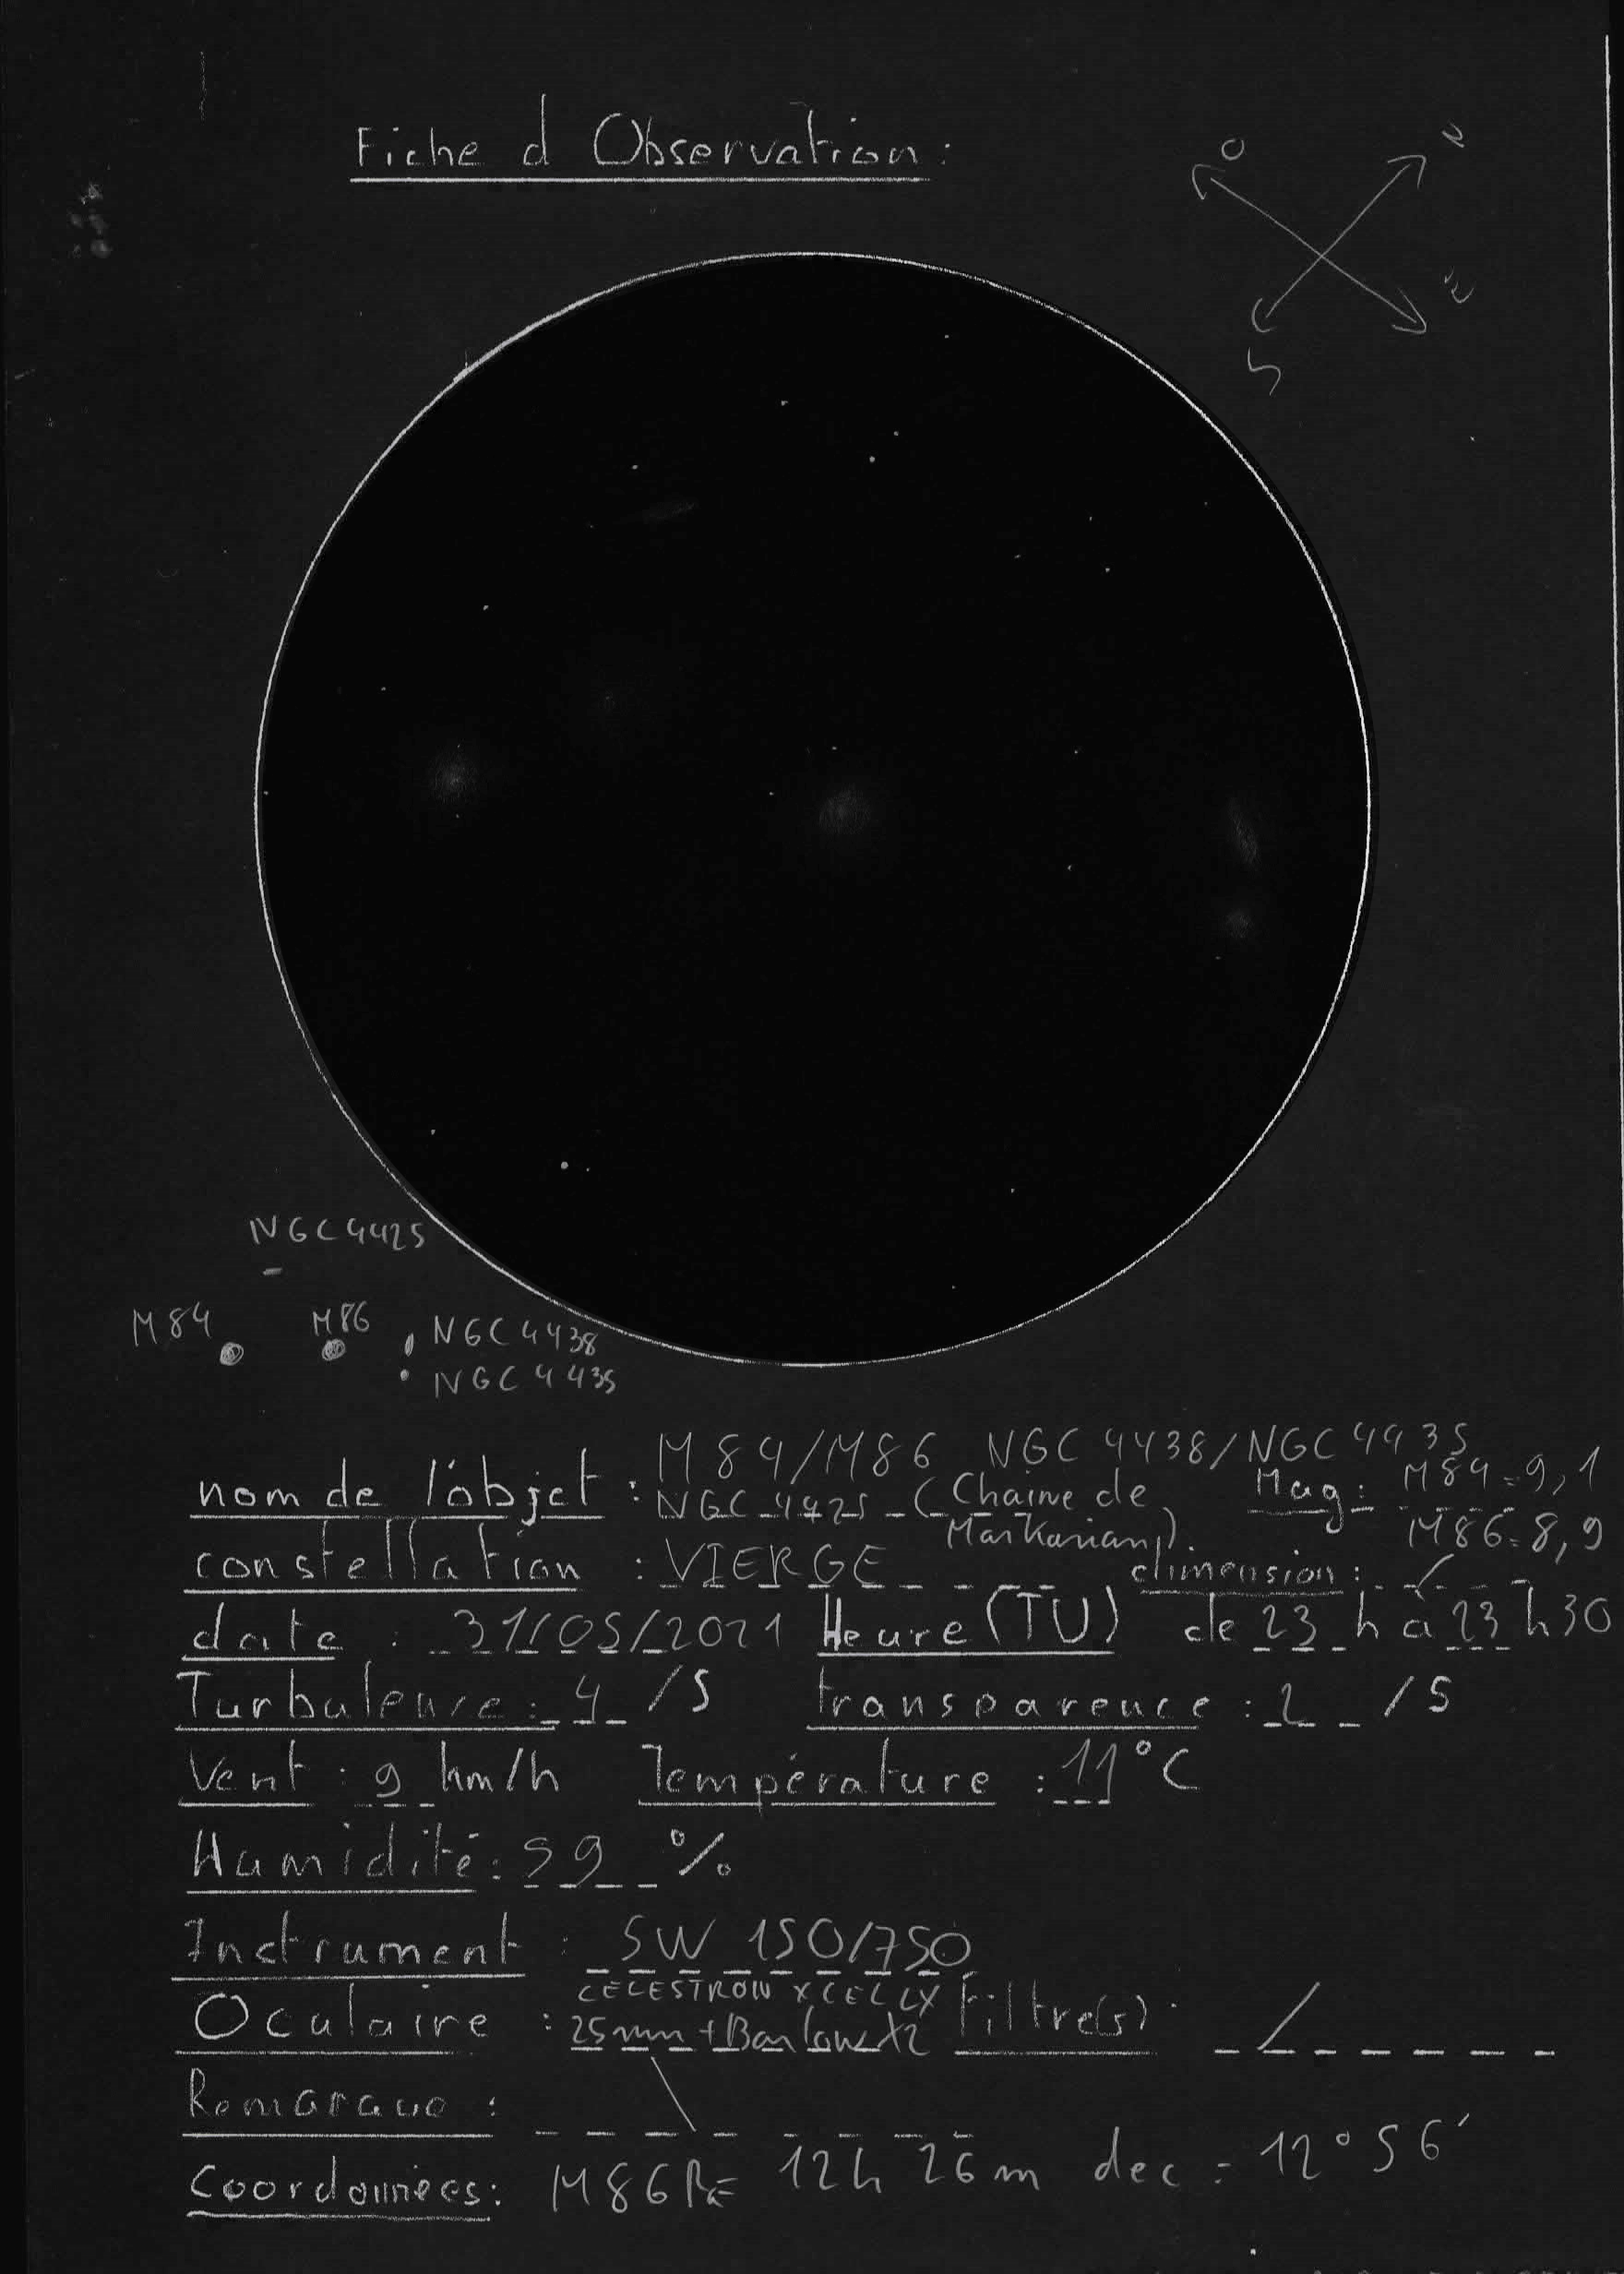 Fiche d Observation :
O N
E
S
NGC 4425
M84 M86 NGC 4438
NGC 4435
M84/M86 NGC 4438/NGC 4435
nom de l'objet : NGC 4425 (Chaine de Mag : M84=9,1
Markarian) M86=8,9
constellation : VIERGE dimension : /
date : 31/05/2021 Heure (TU) de 23 h à 23 h 30
Turbulence : 4 /5 transparence : 2 /5
Vent : 9 km/h Température : 11°C
Humidité : 59 %
Instrument : SW 150/750
CELESTRON XCELLX
Oculaire : 25mm + Barlow X2 Filtre(s) : /
Remarque :
Coordonnées : M86 R= 12h 26m dec = 12°56'